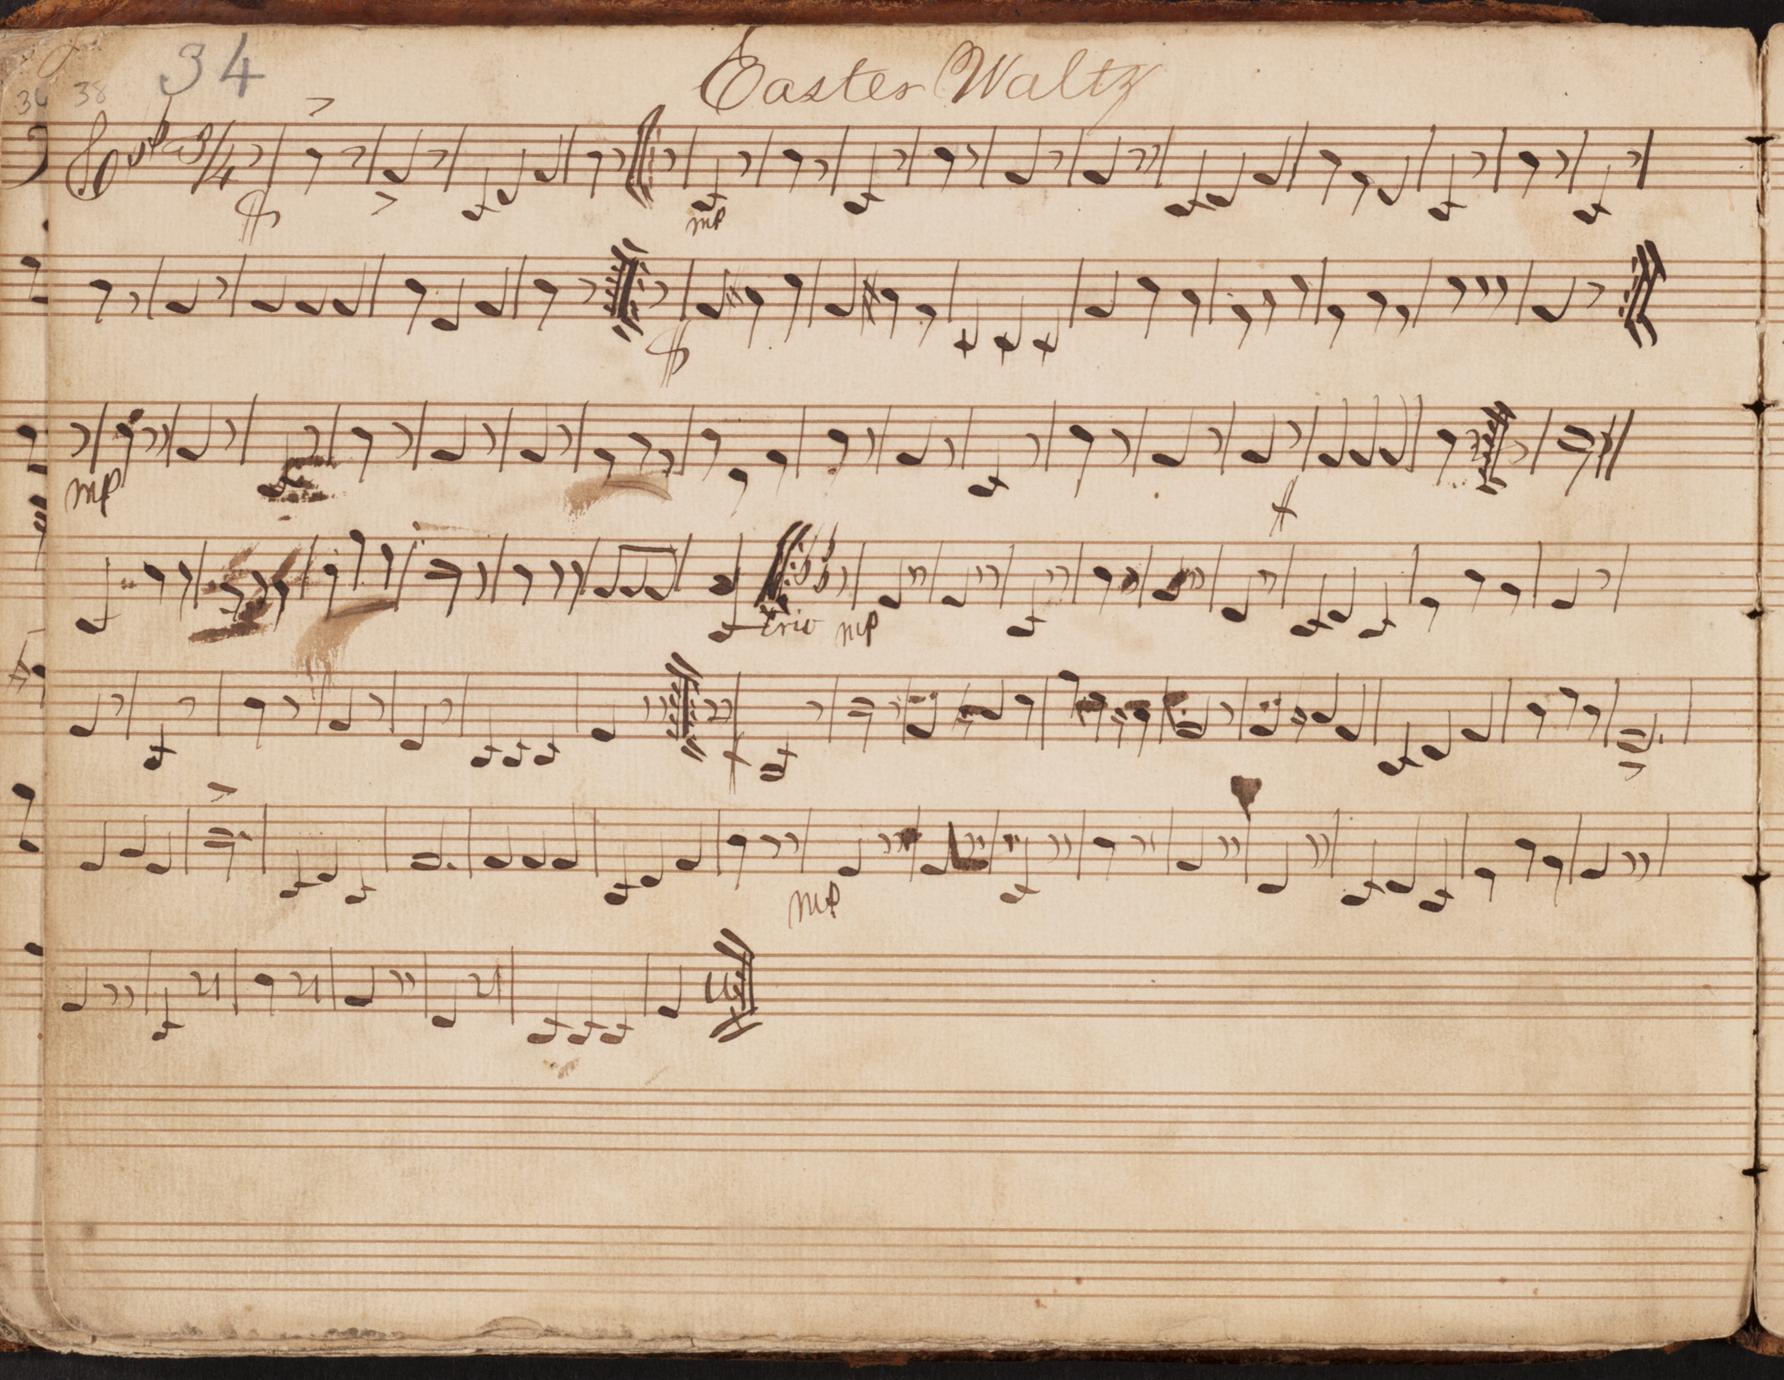 34
38
Easter Waltz
3/4
mp
mp
Trio mp
mp